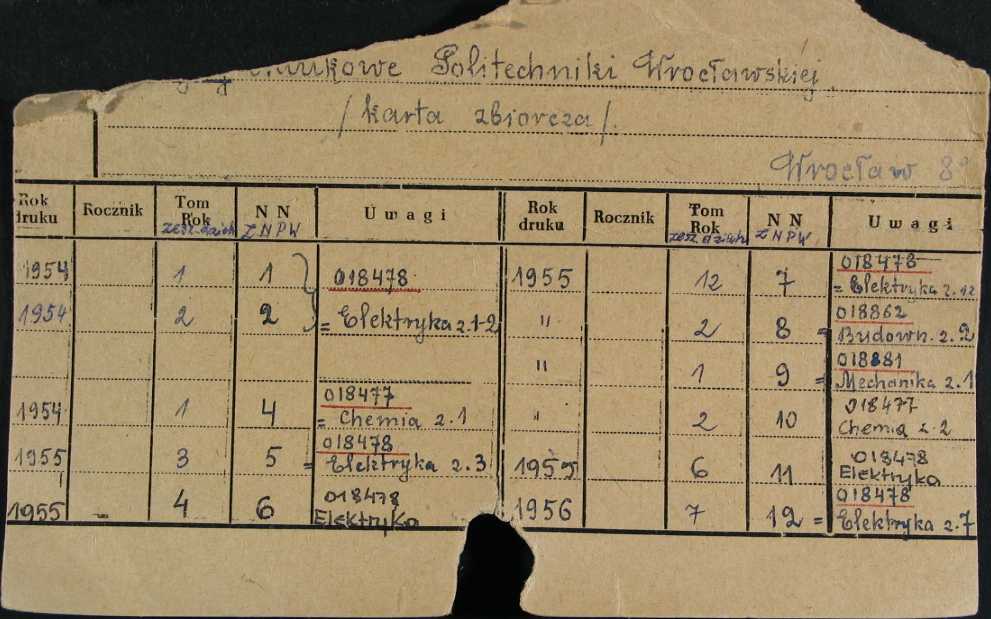 Naukowe Politechniki Wrocławskiej
/karta zbiorcza/.
Wrocław 8°
Rok druku Rocznik Tom Rok N N Uwagi Rok druku Rocznik Tom Rok N N Uwagi
zesz. dzied. Z N P W zesz. dzied. Z N P W
1954 1 1 018478 1955 12 7 018478 = Elektryka z. 12
1954 2 2 = Elektryka z. 1-2 " 2 8 = 018862 Budown. z. 2
" 1 9 = 018881 Mechanika z. 1
1954 1 4 018477 = Chemia z. 1 " 2 10 018477 Chemia z. 2
1955 3 5 = 018478 Elektryka z. 3 1955 6 11 018478 Elektryka
1955 4 6 018478 Elektryka 1956 7 12 = 018478 Elektryka z. 7